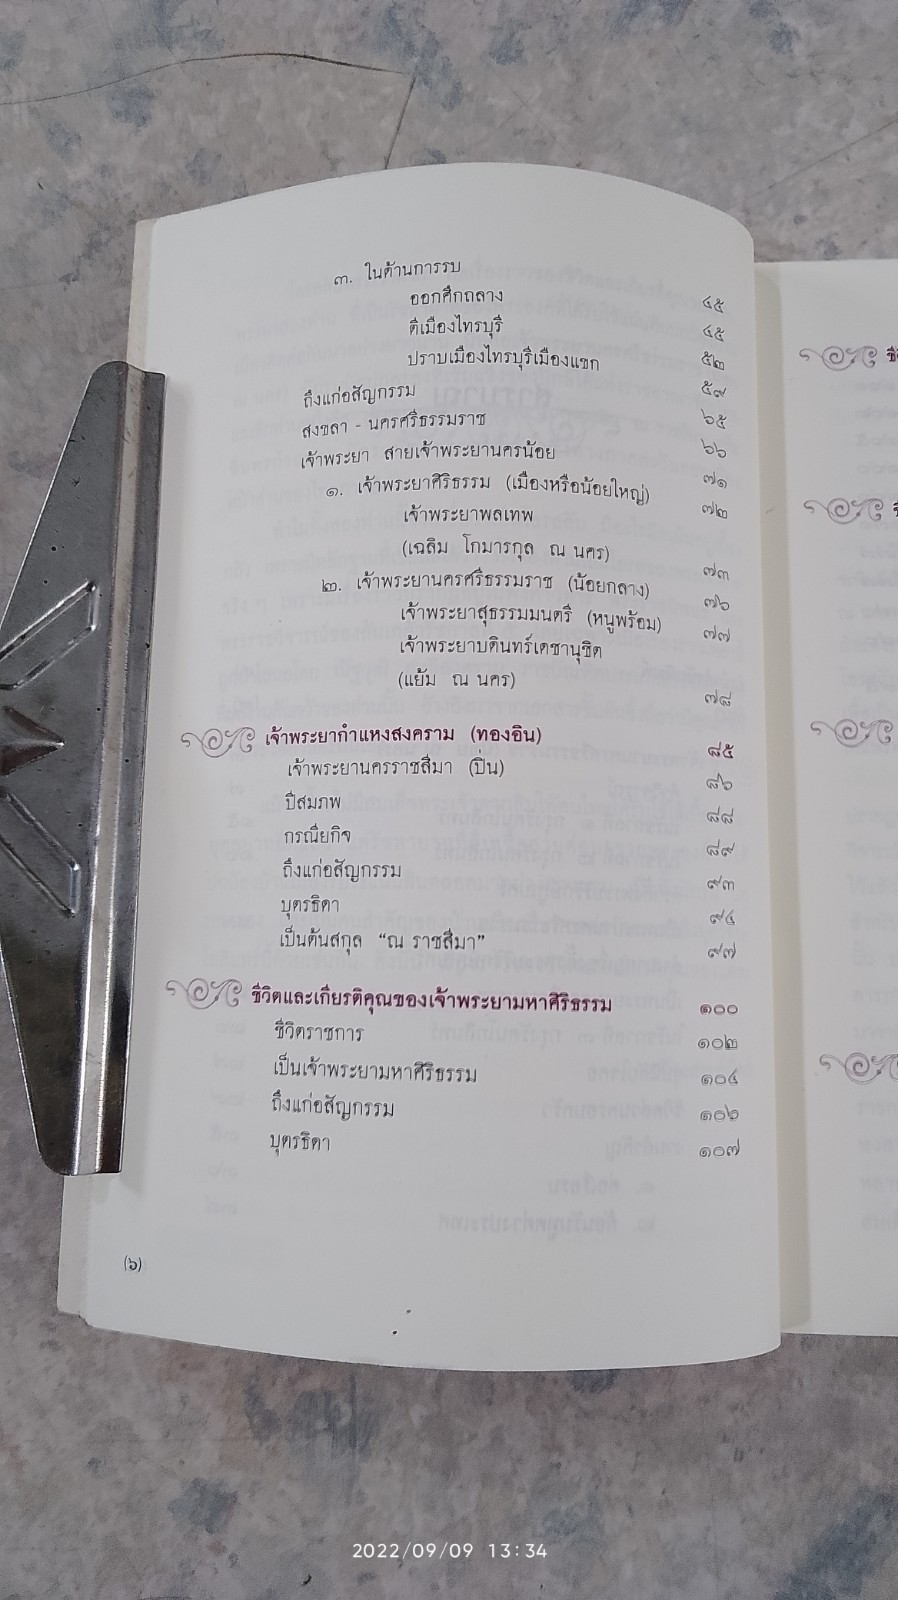 ๓. ในด้านการรบ ๔๕
ออกศึกถลาง ๔๕
ตีเมืองไทรบุรี ๕๒
ปราบเมืองไทรบุรีเมืองแขก ๕๙
ถึงแก่อสัญกรรม ๖๕
สงขลา - นครศรีธรรมราช ๖๖
เจ้าพระยา สายเจ้าพระยานครน้อย ๗๑
๑. เจ้าพระยาศิริธรรม (เมืองหรือน้อยใหญ่) ๗๒
เจ้าพระยาพลเทพ
(เฉลิม โกมารกุล ณ นคร) ๗๓
๒. เจ้าพระยานครศรีธรรมราช (น้อยกลาง) ๗๖
เจ้าพระยาสุธรรมมนตรี (หนูพร้อม) ๗๗
เจ้าพระยาบดินทร์เดชานุชิต
(แย้ม ณ นคร) ๗๘
เจ้าพระยากำแหงสงคราม (ทองอิน) ๘๕
เจ้าพระยานครราชสีมา (ปิ่น) ๘๖
ปีสมภพ ๘๘
กรณียกิจ ๘๙
ถึงแก่อสัญกรรม ๙๓
บุตรธิดา ๙๔
เป็นต้นสกุล “ณ ราชสีมา” ๙๗
ชีวิตและเกียรติคุณของเจ้าพระยามหาศิริธรรม ๑๐๐
ชีวิตราชการ ๑๐๒
เป็นเจ้าพระยามหาศิริธรรม ๑๐๔
ถึงแก่อสัญกรรม ๑๐๖
บุตรธิดา ๑๐๗
(๖)
2022/09/09 13:34